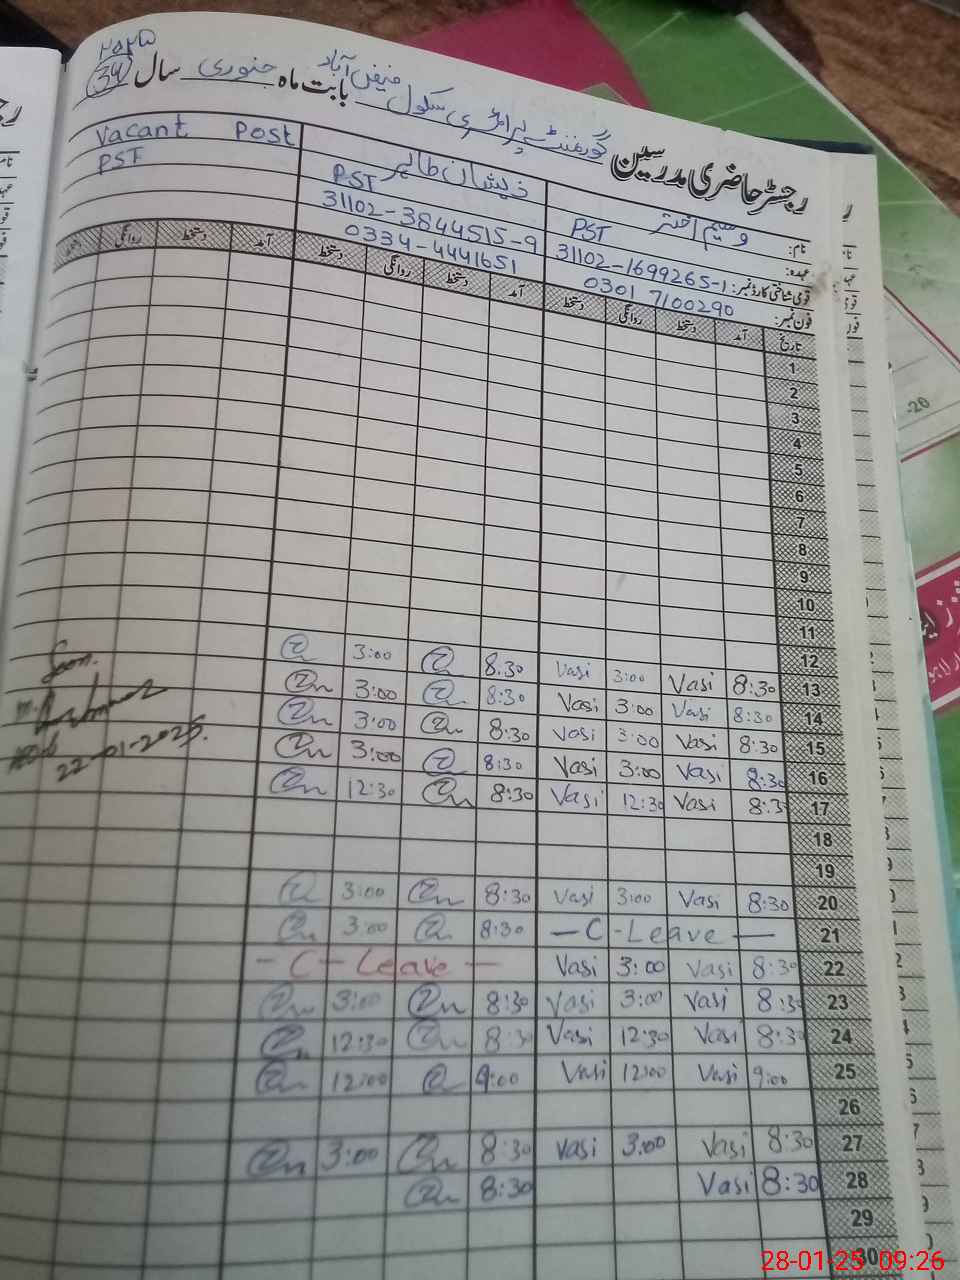 رجسٹر حاضری مدرسین گورنمنٹ پرائمری سکول فیض آباد بابت ماہ جنوری سال ۲۰۲۵
34
نام: وسیم اختر ذیشان طاہر Vacant Post
عہدہ: PST PST PST
قومی شناختی کارڈ نمبر: 31102-1699265-1 31102-3844515-9
فون نمبر: 0301 7100290 0334-4441651
تاریخ آمد دستخط روانگی دستخط آمد دستخط روانگی دستخط آمد دستخط روانگی دستخط
1
2
3
4
5
6
7
8
9
10
11
12
13 8:30 Vasi 3:00 Vasi 8:30 3:00
14 8:30 Vasi 3:00 Vasi 8:30 3:00
15 8:30 Vasi 3:00 Vasi 8:30 3:00
16 8:30 Vasi 3:00 Vasi 8:30 3:00
17 8:3 Vasi 12:30 Vasi 8:30 12:30
18
19
20 8:30 Vasi 3:00 Vasi 8:30 3:00
21 - C - Leave - 8:30 3:00
22 8:30 Vasi 3:00 Vasi - C - Leave -
23 8:30 Vasi 3:00 Vasi 8:30 3:00
24 8:30 Vasi 12:30 Vasi 8:30 12:30
25 9:00 Vasi 12:00 Vasi 9:00 12:00
26
27 8:30 Vasi 3:00 Vasi 8:30 3:00
28 8:30 Vasi 8:30
29
30
Seen.
22-01-2025.
28-01-25 09:26